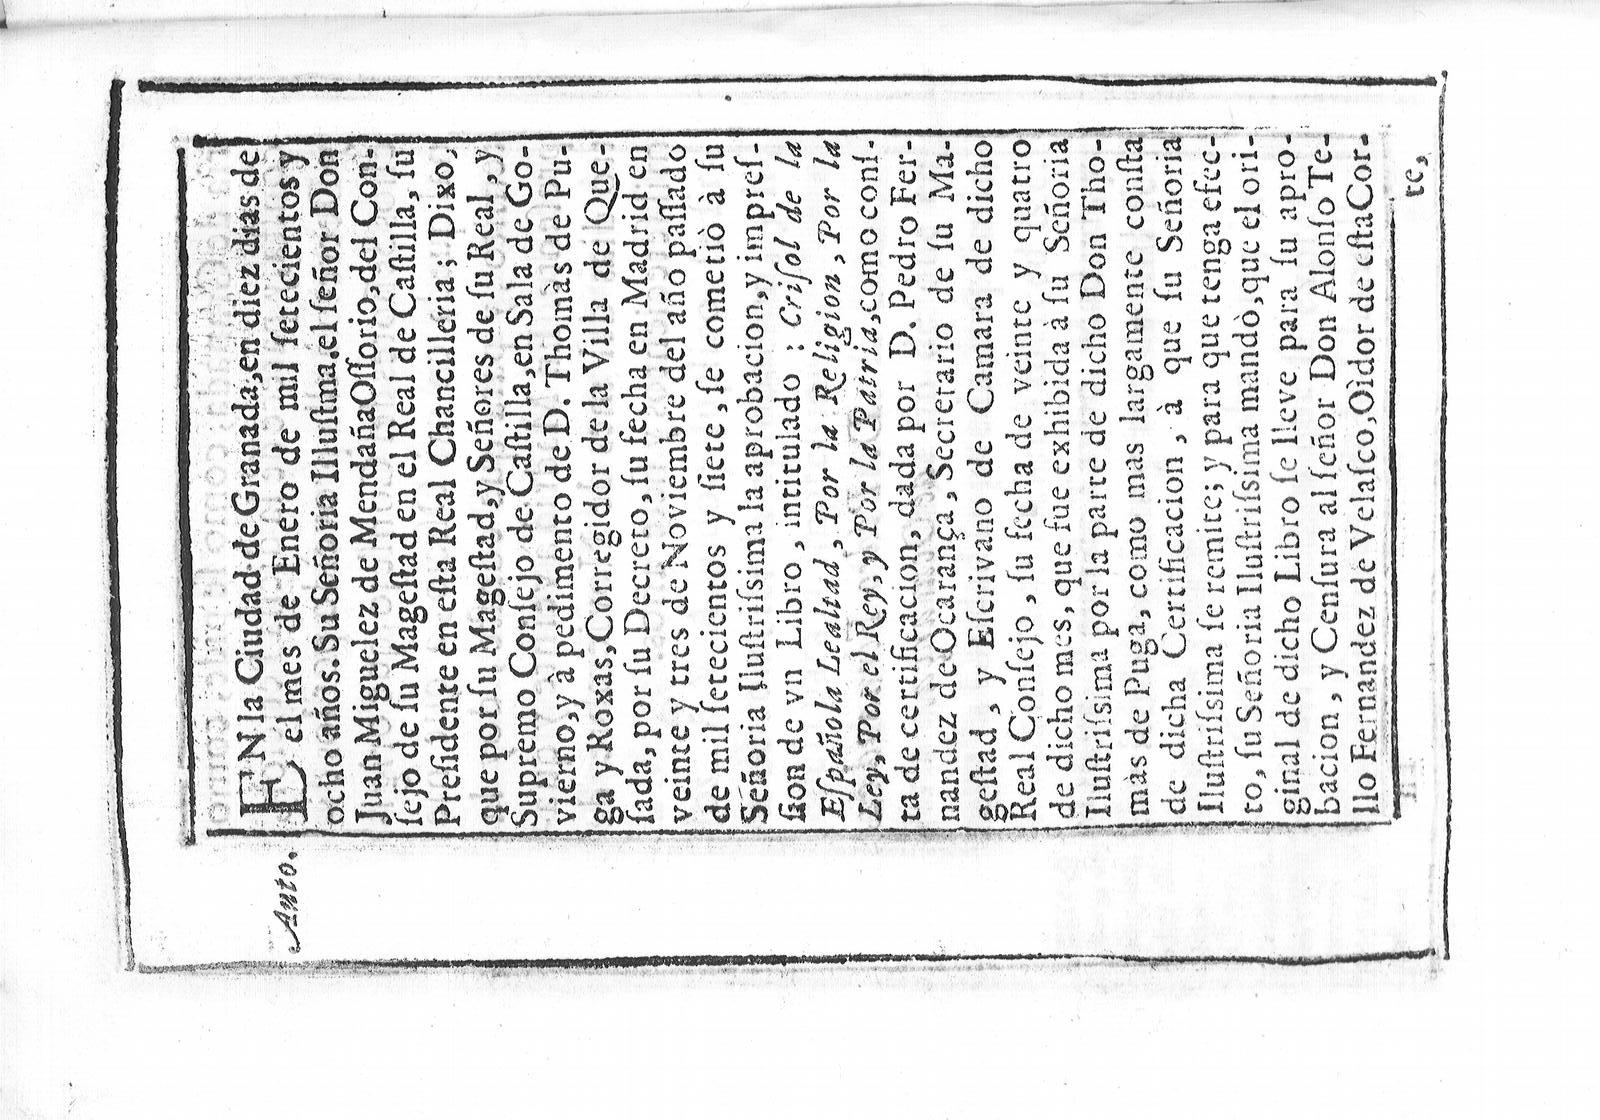 Auto.
EN la Ciudad de Granada, en diez dias de
el mes de Enero de mil ſetecientos y
ocho años. Su Señoria Illuſtma. el ſeñor Don
Juan Miguelez de Mendaña Oſſorio, del Con-
ſejo de ſu Mageſtad en el Real de Caſtilla, ſu
Preſidente en eſta Real Chancilleria; Dixo,
que por ſu Mageſtad, y Señores de ſu Real, y
Supremo Conſejo de Caſtilla, en Sala de Go-
vierno, y à pedimento de D. Thomàs de Pu-
ga y Roxas, Corregidor de la Villa de Que-
ſada, por ſu Decreto, ſu fecha en Madrid en
veinte y tres de Noviembre del año paſſado
de mil ſetecientos y ſiete, ſe cometiò à ſu
Señoria Iluſtriſsima la aprobacion, y impreſ-
ſion de vn Libro, intitulado: Criſol de la
Eſpañola Lealtad, Por la Religion, Por la
Ley, Por el Rey, y Por la Patria, como conſ-
ta de certificacion, dada por D. Pedro Fer-
nandez de Ocarança, Secretario de ſu Ma-
geſtad, y Eſcrivano de Camara de dicho
Real Conſejo, ſu fecha de veinte y quatro
de dicho mes, que fue exhibida à ſu Señoria
Iluſtriſsima por la parte de dicho Don Tho-
màs de Puga, como mas largamente conſta
de dicha Certificacion, à que ſu Señoria
Iluſtriſsima ſe remite; y para que tenga efec-
to, ſu Señoria Iluſtriſsima mandò, que el ori-
ginal de dicho Libro ſe lleve para ſu apro-
bacion, y Cenſura al ſeñor Don Alonſo Te-
llo Fernandez de Velaſco, Oìdor de eſta Cor-
te,